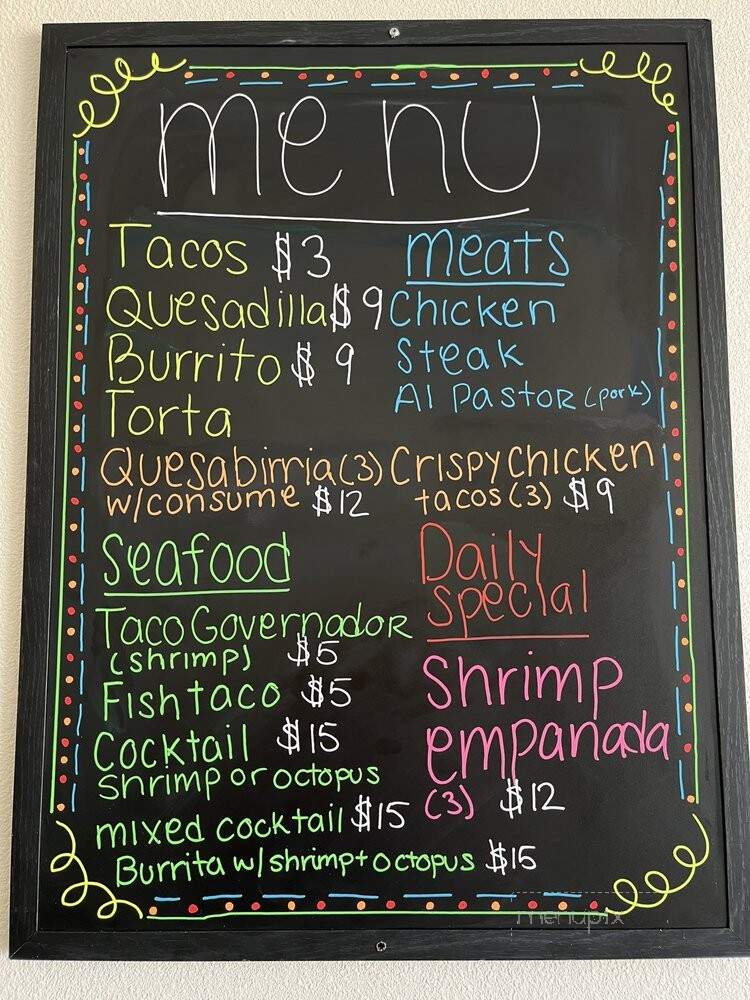 menu
Tacos $3
Quesadilla $9
Burrito $9
Torta
meats
Chicken
Steak
Al Pastor (pork)
Quesabirria (3)
w/consume $12
Crispy Chicken
tacos (3) $9
Seafood
Taco Governador
(shrimp) $5
Fish taco $5
Cocktail $15
Shrimp or octopus
mixed cocktail $15
Burrita w/shrimp+octopus $15
Daily
special
Shrimp
empanada
(3) $12
menupix